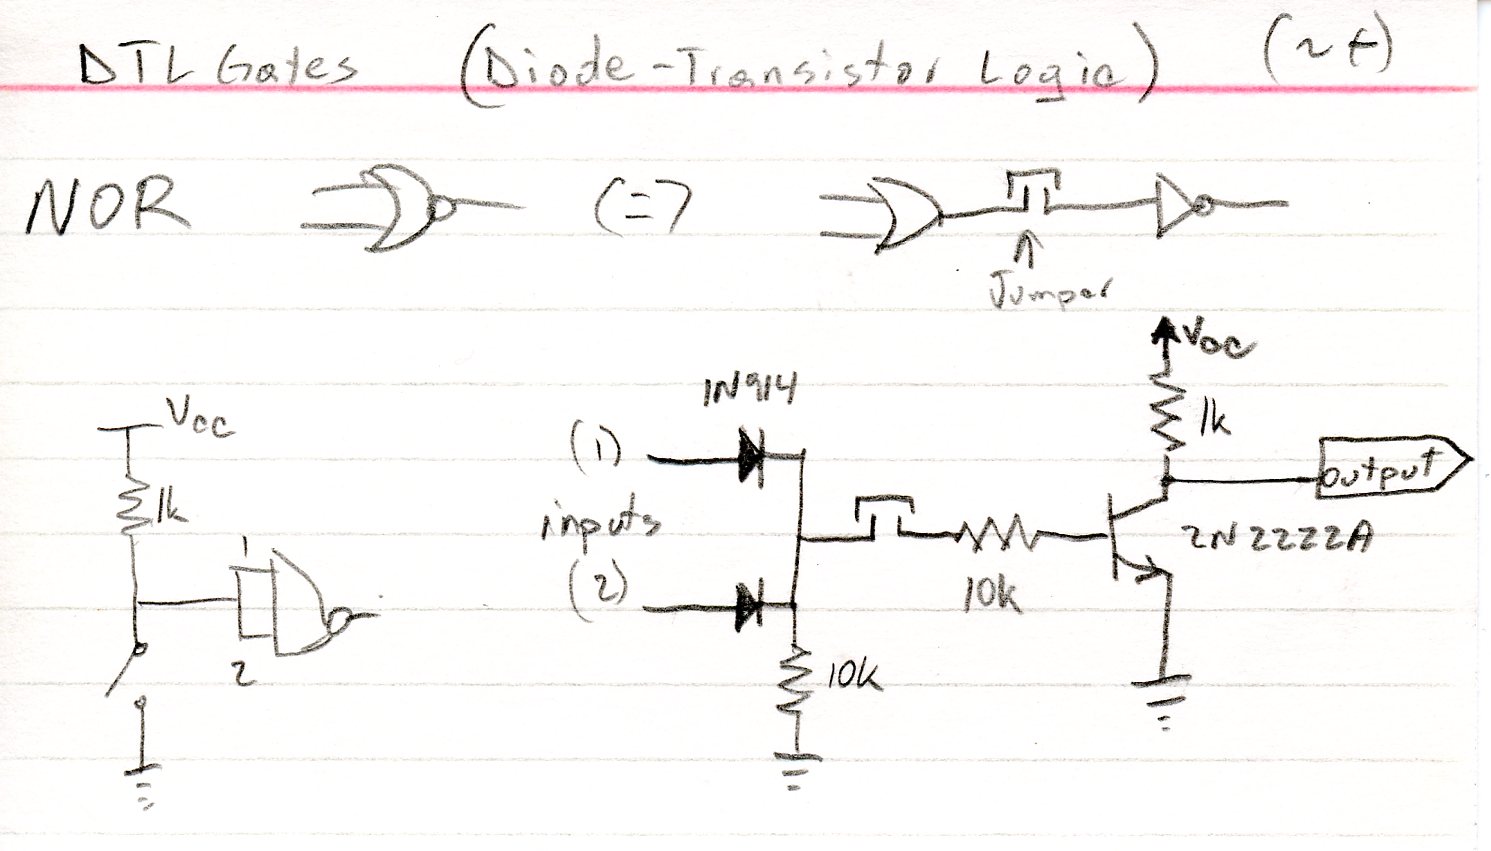 DTL Gates (Diode-Transistor Logic) (~t)
NOR (=7
Jumper
Vcc
1N914
Vcc
1k
(1)
output
1k
inputs
2N2222A
1
(2)
10k
2
10k